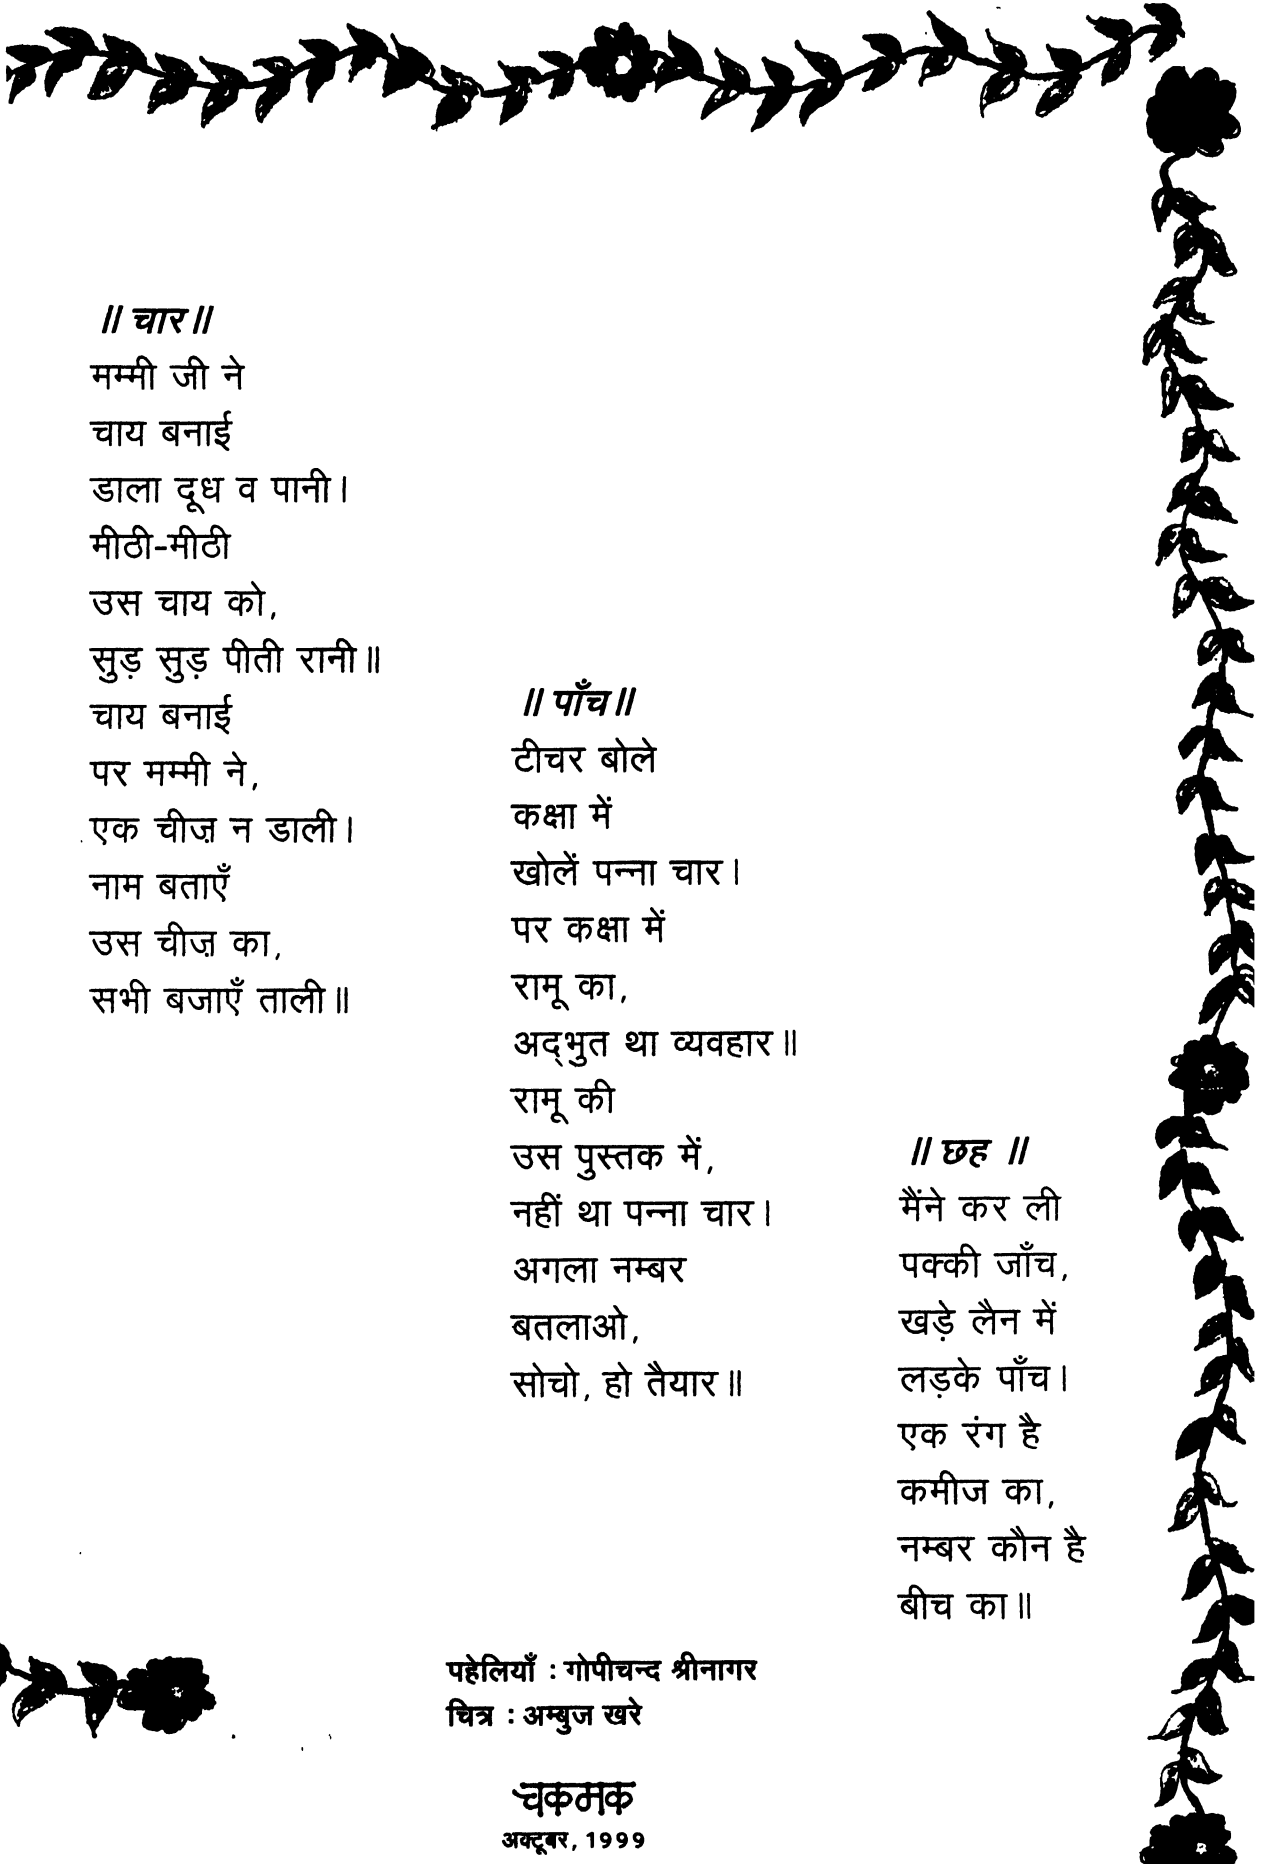 ॥ चार॥
मम्मी जी ने
चाय बनाई
डाला दूध व पानी।
मीठी-मीठी
उस चाय को,
सुड़ सुड़ पीती रानी॥
चाय बनाई
पर मम्मी ने,
एक चीज़ न डाली।
नाम बताएँ
उस चीज़ का,
सभी बजाएँ ताली॥
॥ पाँच॥
टीचर बोले
कक्षा में
खोलें पन्ना चार।
पर कक्षा में
रामू का,
अद्‌भुत था व्यवहार॥
रामू की
उस पुस्तक में,
नहीं था पन्ना चार।
अगला नम्बर
बतलाओ,
सोचो, हो तैयार॥
॥ छह ॥
मैंने कर ली
पक्की जाँच,
खड़े लैन में
लड़के पाँच।
एक रंग है
कमीज का,
नम्बर कौन है
बीच का॥
पहेलियाँ : गोपीचन्द श्रीनागर
चित्र : अम्बुज खरे
चकमक
अक्टूबर, 1999